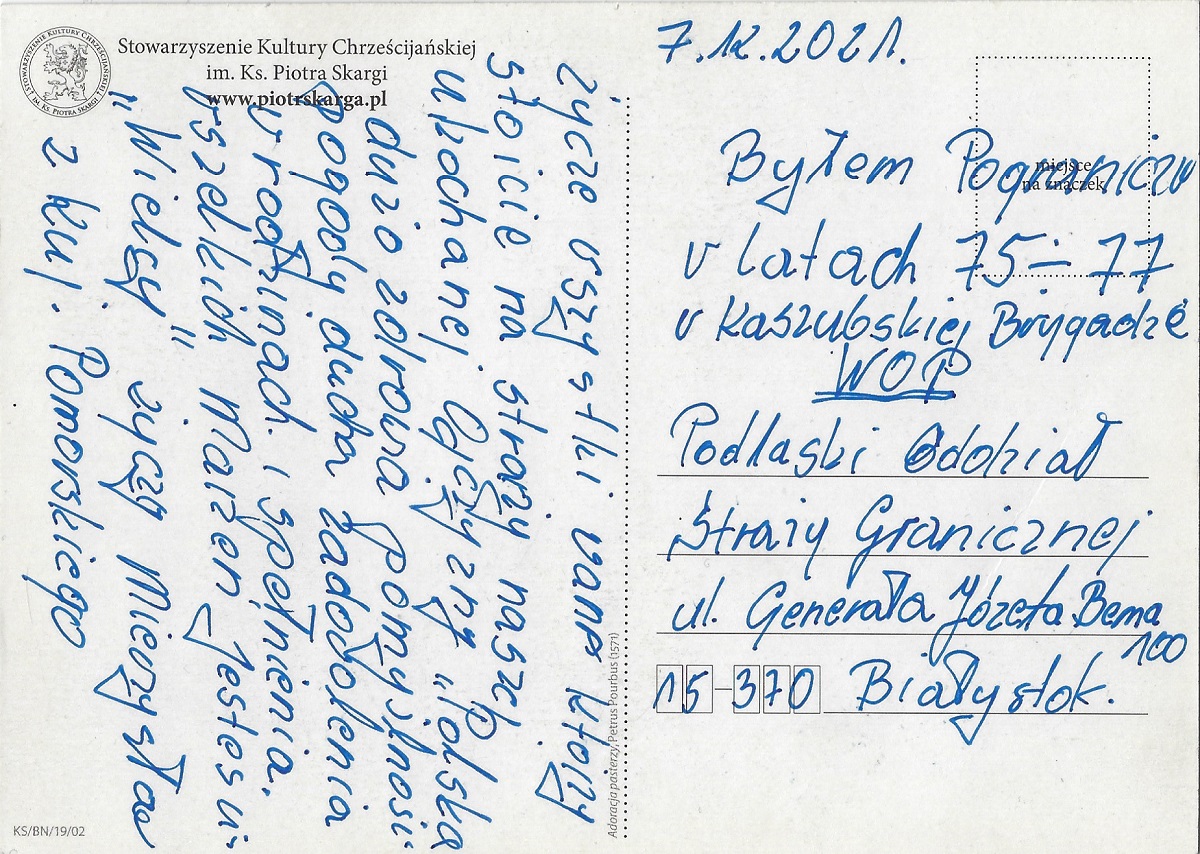 STOWARZYSZENIE KULTURY CHRZEŚCIJAŃSKIEJ
IM. KS. PIOTRA SKARGI
Stowarzyszenie Kultury Chrześcijańskiej
im. Ks. Piotra Skargi
www.piotrskarga.pl
życzę vszystki vam któży
stoicie na straży naszej
ukochanej Ojczyzny „Polska
dużo zdrowia pomyślności
pogody ducha zadowolenia
v rodzinach i spełnienia.
vszelkich Marzeń Jesteśu
„Wielcy" życzy Mieczysław
z kuj. Pomorskiego
KS/BN/19/02
Adoracja pasterzy, Petrus Pourbus (1571)
7.12.2021.
miejsce
na znaczek
Byłem Pograniczu
v latach 75÷77
v Kaszubskiej Brygadzé
WOP
Podlaski Oddział
Straży Granicznej
ul. Generała Józefa Bema
100
15-370 Białystok.